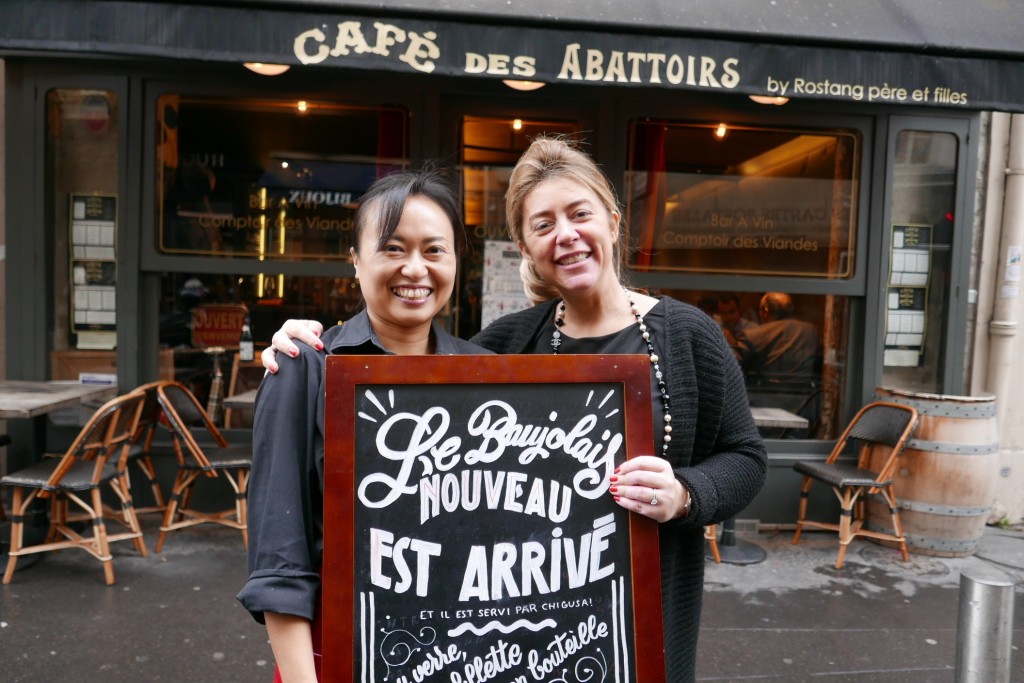 CAFÉ DES ABATTOIRS by Rostang père et filles
BIJOUX
Bar À Vin
Comptoir des Viandes
Bar À Vin
Comptoir des Viandes
OUVERT
Le Beaujolais
NOUVEAU
EST ARRIVÉ
ET IL EST SERVI PAR CHIGUSA!
verre,
bouteille